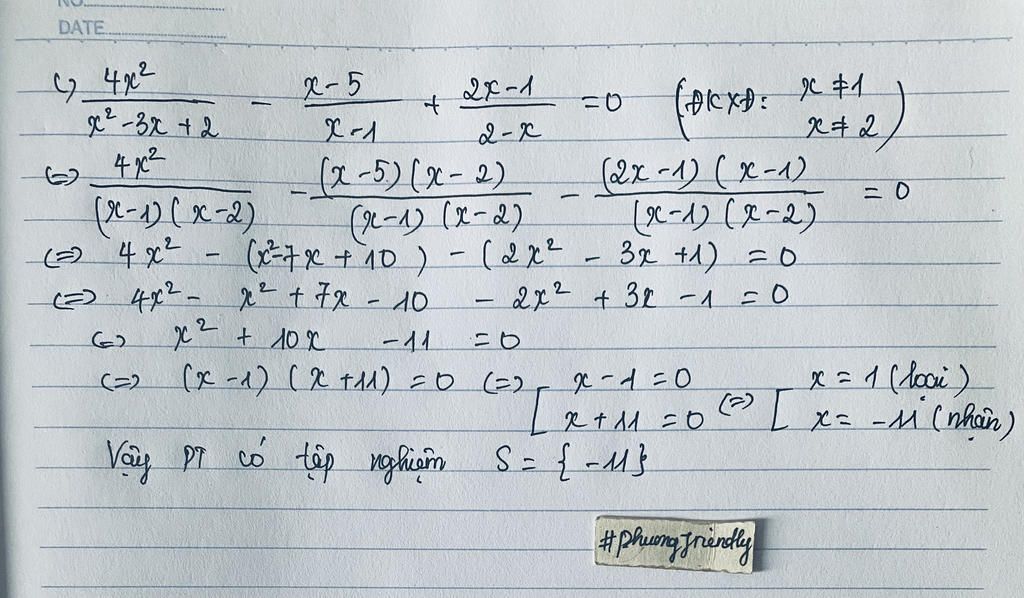 NO.
DATE
c, 4x²/(x²-3x+2) - (x-5)/(x-1) + (2x-1)/(2-x) = 0 (ĐKXĐ: x ≠ 1 x ≠ 2)
(=) 4x²/((x-1)(x-2)) - ((x-5)(x-2))/((x-1)(x-2)) - ((2x-1)(x-1))/((x-1)(x-2)) = 0
(=) 4x² - (x²-7x+10) - (2x² - 3x +1) = 0
(=) 4x² - x² + 7x - 10 - 2x² + 3x - 1 = 0
(=) x² + 10x - 11 = 0
(=) (x-1)(x+11) = 0 (=) [ x-1 = 0 x+11 = 0 (=) [ x = 1 (loại) x = -11 (nhận)
Vậy PT có tập nghiệm S = {-11}
#phuongfriendly